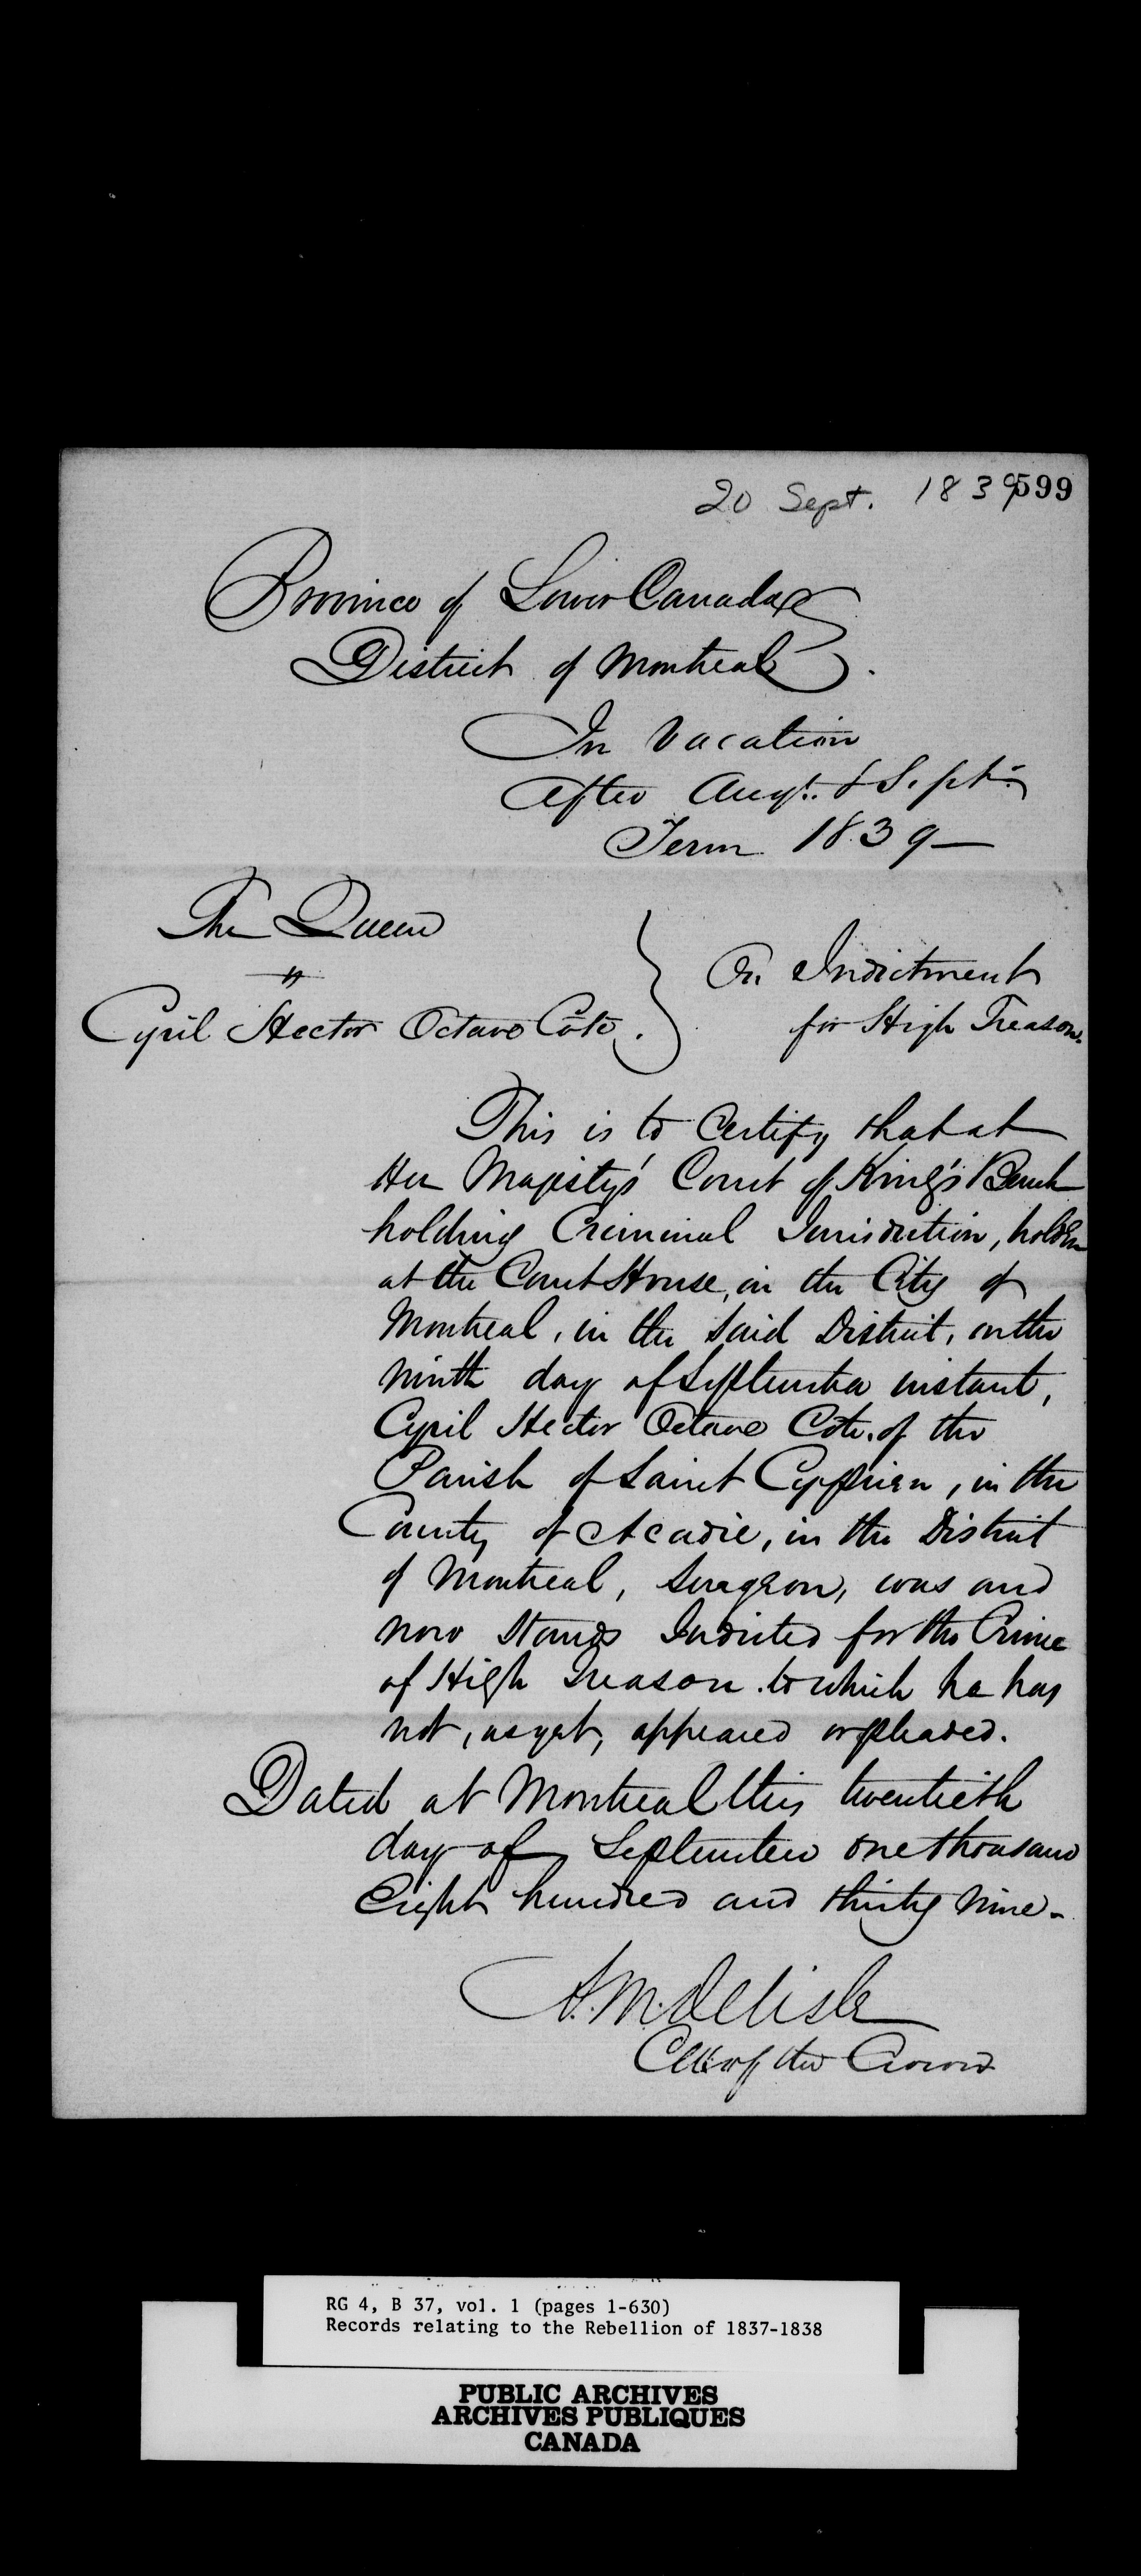 20 Sept. 1839 599
Province of Lower Canada
District of Montreal.
In Vacation
After Augt. & Sept.
Term 1839—
The Queen
vs
Cyril Hector Octave Côté.
On Indictment
for High Treason.
This is to Certify that at
Her Majesty's Court of King's Bench
holding Criminal Jurisdiction, holden
at the Court House, in the City of
Montreal, in the said District, on the
ninth day of September instant,
Cyril Hector Octave Cote, of the
Parish of Saint Cyprien, in the
County of Acadie, in the District
of Montreal, Surgeon, was and
now stands Indicted for the Crime
of High Treason to which he has
not, as yet, appeared or pleaded.
Dated at Montreal this twentieth
day of September one thousand
Eight hundred and thirty nine-
A. M. Delisle
Clk of the Crown
RG 4, B 37, vol. 1 (pages 1-630)
Records relating to the Rebellion of 1837-1838
PUBLIC ARCHIVES
ARCHIVES PUBLIQUES
CANADA